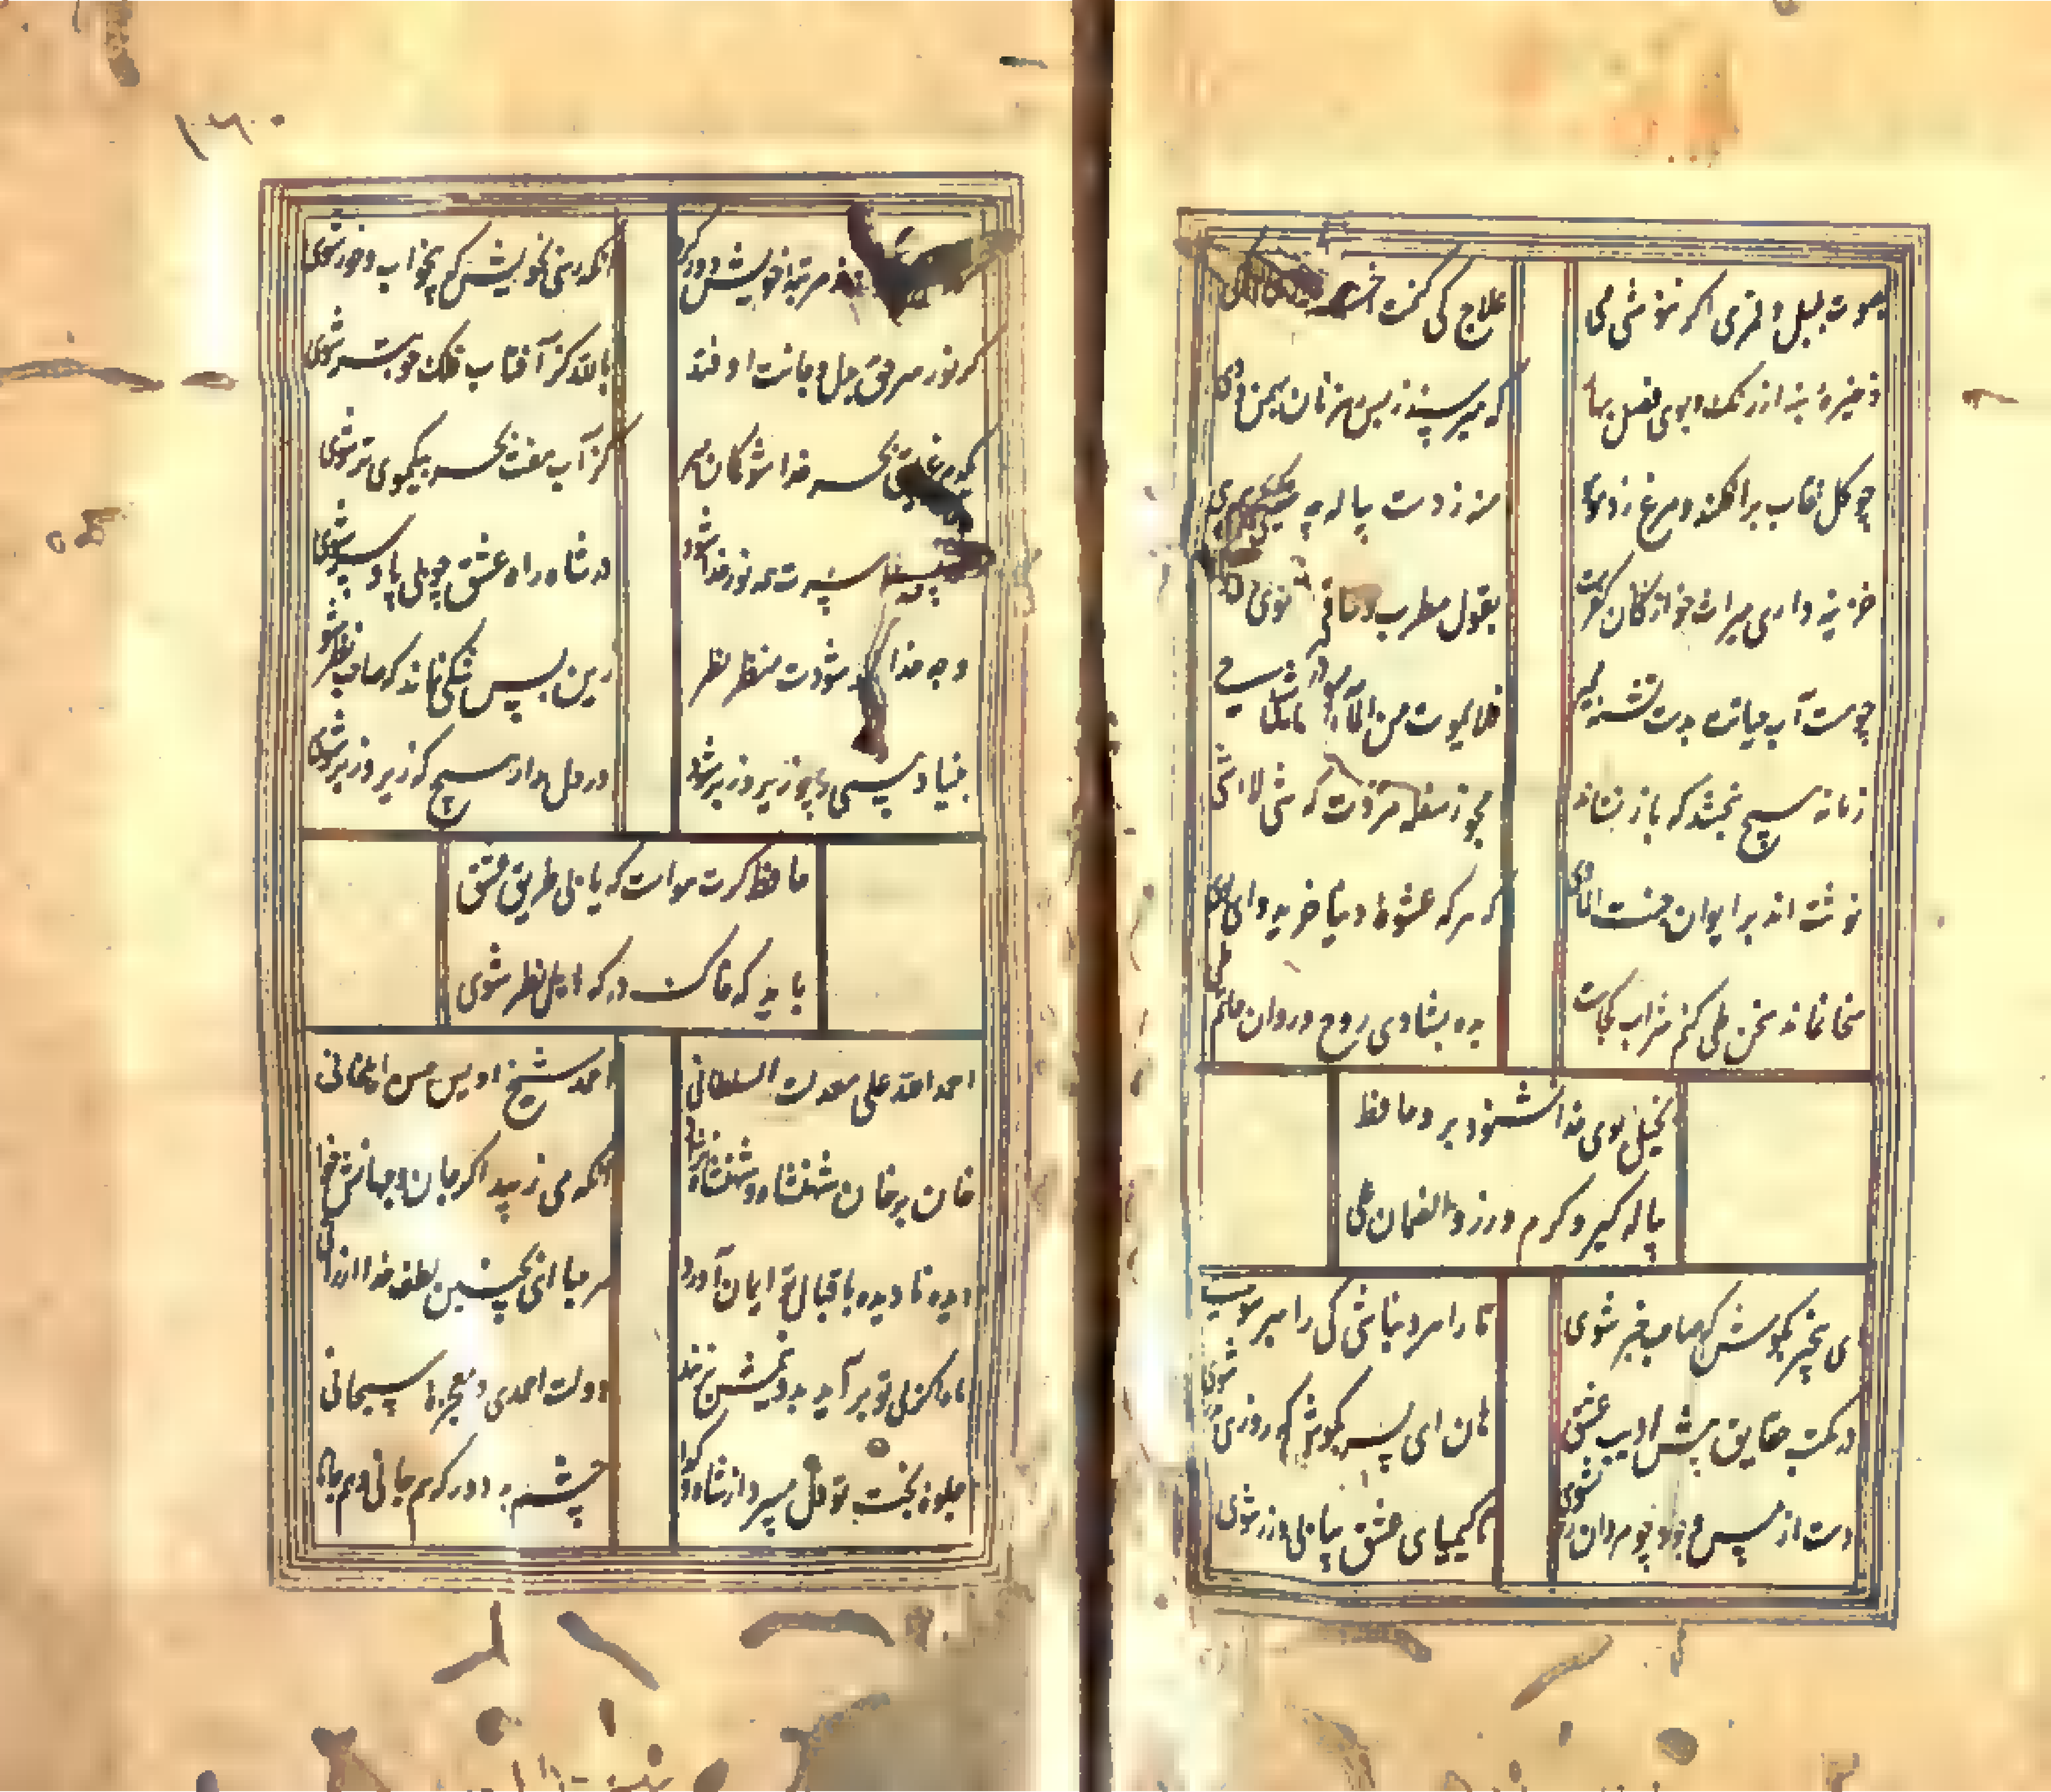 بصوت بلبل و قمری اکر ننوشی می علاج کی کنمت
ذخیره بنه از رنک و بوی فصل بهار که میرسند ز پس رهزنان بهمن و دی
چو کل نقاب برافکند و مرغ زد هوهو منه ز دست پیاله چه میکنی هی هی
خزینه داری میراث خوارکان کفرست بقول مطرب و ساقی
چو هست آب حیاتت بدست تشنه ممیر فلا تموت من الماء کل شی حی
زمانه هیچ نبخشد که باز نستاند مجو ز سفله مروت که شی لا شی
نوشته اند بر ایوان جنت الماوی که هر که عشوه دنیا خرید وای بوی
سخا نماند سخن طی کنم شراب کجاست بده بشادی روح و روان حاتم طی
بخیل بوی خدا نشنود برو حافظ
پیاله کیر و کرم ورز و الضمان علی
ای بیخبر بکوش که صاحب خبر شوی تا راهرو نباشی کی راهبر شوی
در مکتب حقایق پیش ادیب عشق هان ای پسر بکوش که روزی پدر شوی
دست از مس وجود چو مردان ره بشوی تا کیمیای عشق بیابی و زر شوی
١٦٠
ز مرتبه خویش دور کرد آنکه رسی بخویش که بیخواب و خور شوی
کر نور مهر حق بدل و جانت اوفتد بالله کز آفتاب فلک خوبتر شوی
بحر خدا شو کمان مبر کز آب هفت بحر بیک موی تر شوی
همه نور خدا شود در شاه راه عشق چو بی پا و سر شوی
وجه خدا شودت منظر نظر زین پس شکی نماند که صاحب نظر شوی
بنیاد هستی چو زیر و زبر شود در دل مدار هیچ که زیر و زبر شوی
حافظ کرت هواست که یابی طریق عشق
باید که خاک درکه اهل نظر شوی
احمد الله علی معدلت السلطانی احمد شیخ اویس حسن ایلخانی
خان بن خان شهنشاه و شهنشاه نژاد آنکه می زیبد اکر جان و جهانش خوانی
دیده نادیده باقبال تو ایمان آورد مرحبا ای بچنین لطف خدا ارزانی
ماه اکر بی تو برآید بدو نیمش بزنند دولت احمدی و معجزه سبحانی
جلوه بخت تو دل میبرد از شاه و کدا چشم بد دور که هم جانی و هم جانانی